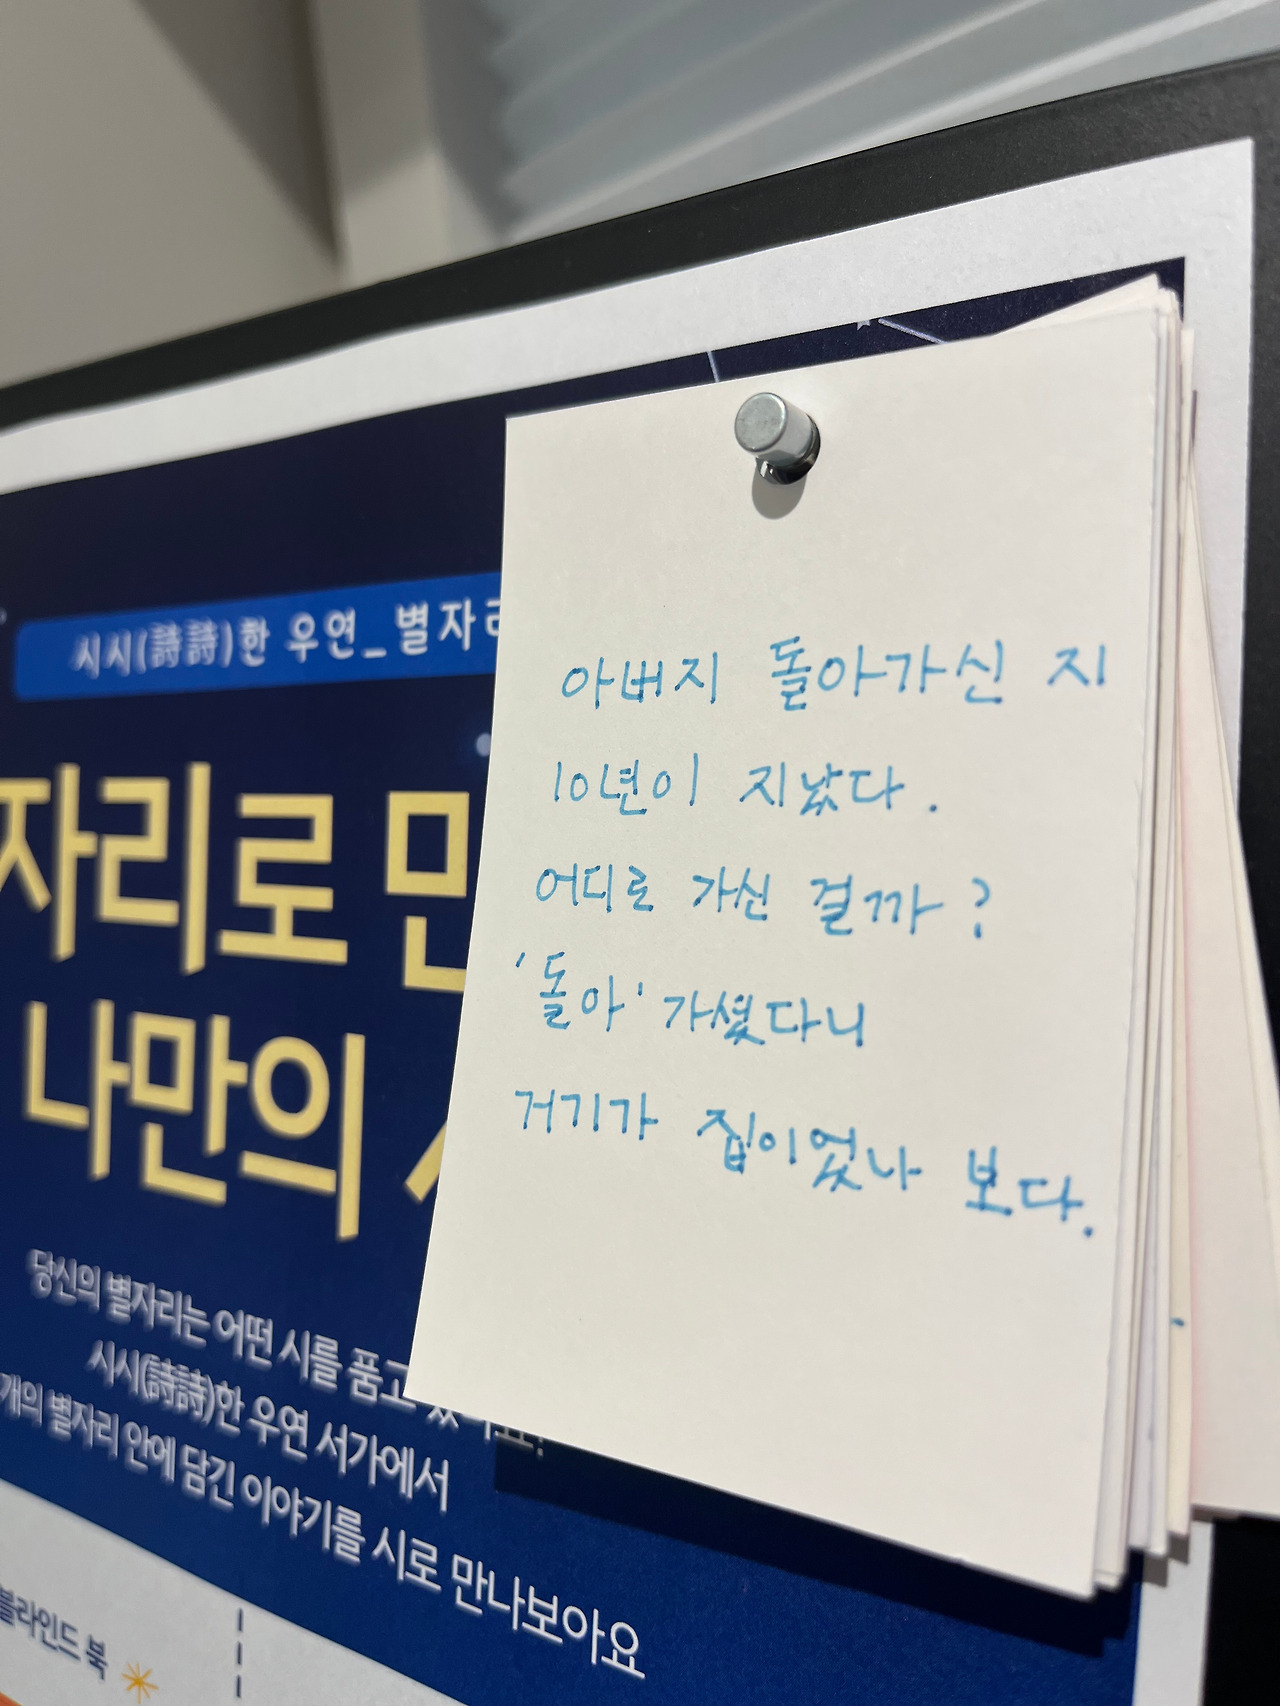 시시(詩詩)한 우연_별자
자리로
나만의
당신의 별자리는 어떤 시를 품고
시시(詩詩)한 우연 서가에서
개의 별자리 안에 담긴 이야기를 시로 만나보아요
블라인드 북
아버지 돌아가신 지
10년이 지났다.
어디로 가신 걸까?
'돌아' 가셨다니
거기가 집이었나 보다.